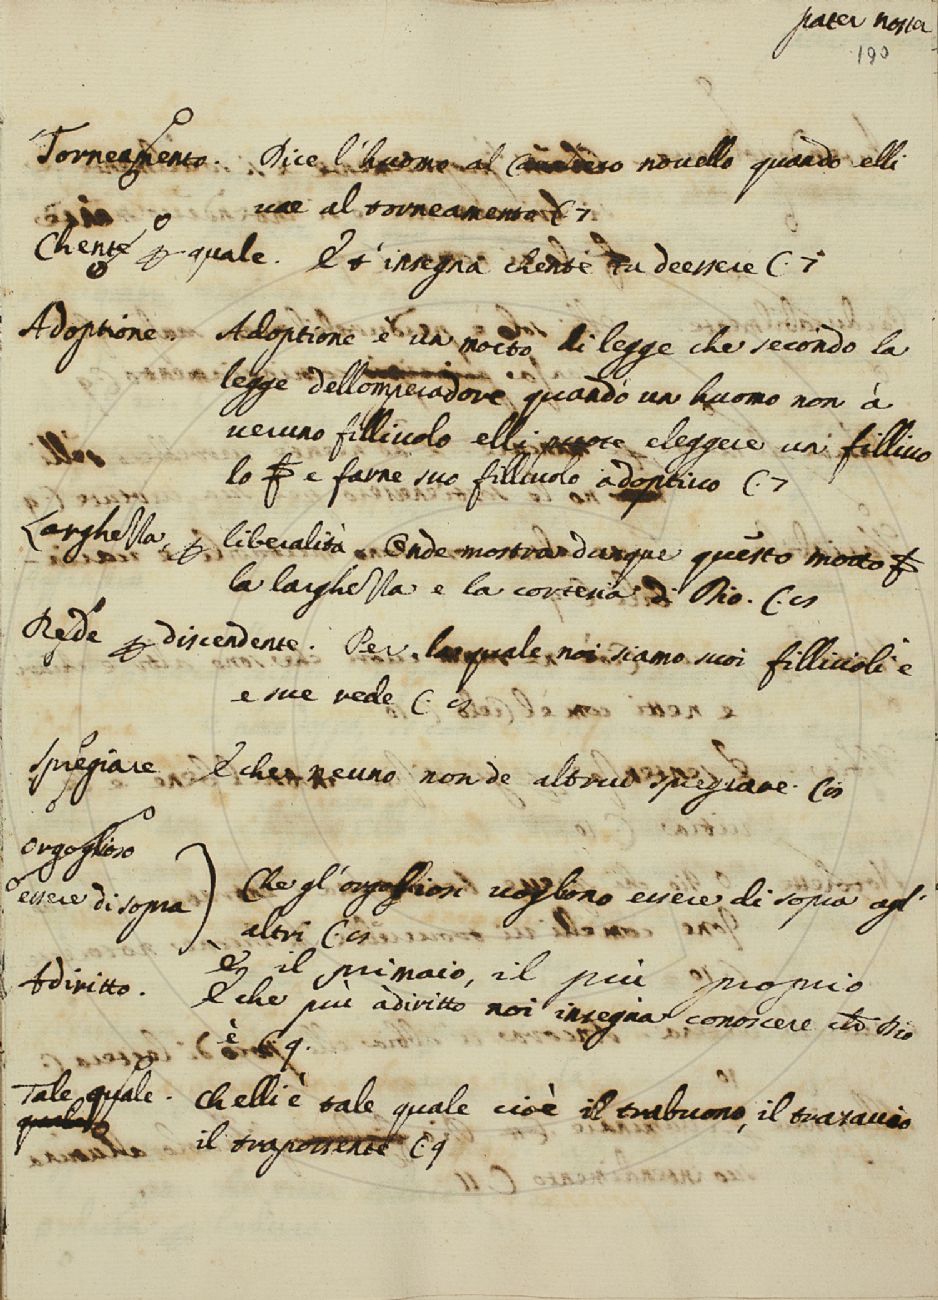 pater noster
190
Torneamento. Dice l'huomo al novello quando elli
vae al torneamento C 7
Chente quale. E t'insegna chente tu deessere C. 7
Adoptione. Adoptione è un motto di legge che secondo la
legge dellomperadore quando un huomo non à
veruno fillivolo elli puote eleggere un fillivo
lo e farne suo fillivolo adoptivo C 7
Larghezza liberalità Onde mostra dunque questo motto
la larghezza e la cortesia di Dio. C.
Rede discendente. Per la quale noi siamo suoi fillivoli e
e sue rede C.
Spregiare E che neuno non de altrui spregiare. C
Orgoglioso
essere di sopra Che gl'orgogliosi vogliono essere di sopra agl'
altri C.
è il primaio, il più proprio
Adiritto. E che più adiritto noi insegna conoscere Dio
è C. 9.
Tale quale. Chelli è tale quale cioè il trabuono, il trasavio
quale
il trapossente C. 9